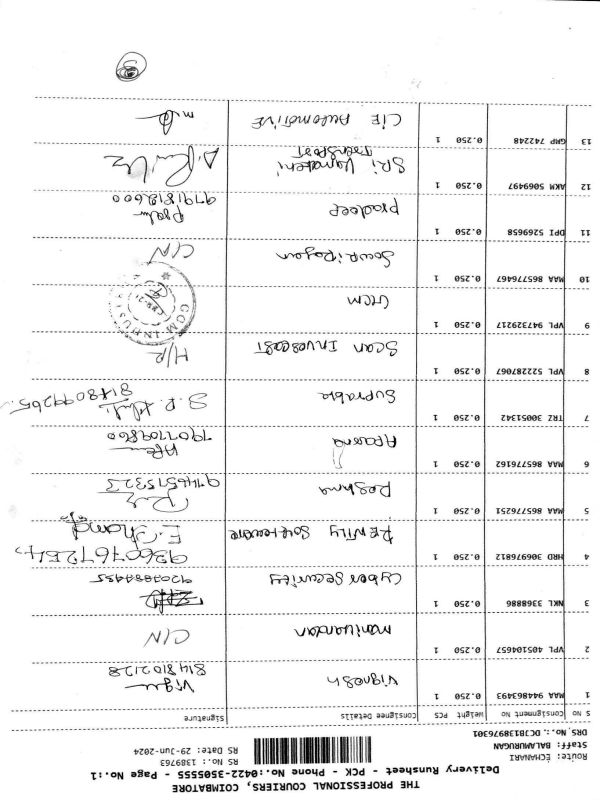 THE PROFESSIONAL COURIERS, COIMBATORE
Delivery Runsheet - PCK - Phone No.:0422-3505555 - Page No.:1
Route: ECHANARI
Staff: BALAMURUGAN
DRS No.: DCJB138976301
RS No.: 1389763
RS Date: 29-Jun-2024
S No Consignment No Weight PCS Consignee Details Signature
1 MAA 944863493 0.250 1 Vignesh
8148102128
2 VPL 405104657 0.250 1 Manivandan C/N
3 NKL 3368886 0.250 1 Cyber Security
4 HRD 306976812 0.250 1 RENTLY Software
5 MAA 865776251 0.250 1 Reshma
9746515323
6 MAA 865776162 0.250 1 Aparna
7907709860
7 TRZ 30051342 0.250 1 Suprabha
8 VPL 522287067 0.250 1 Scan Investcast H/R
9 VPL 947329217 0.250 1
10 MAA 865776467 0.250 1 C/N
11 DPI 5269658 0.250 1 Pradeep
12 AKM 5069497 0.250 1 SRi Kamatchi
Transport
13 GMP 742248 0.250 1 CIE AUTOMOTIVE